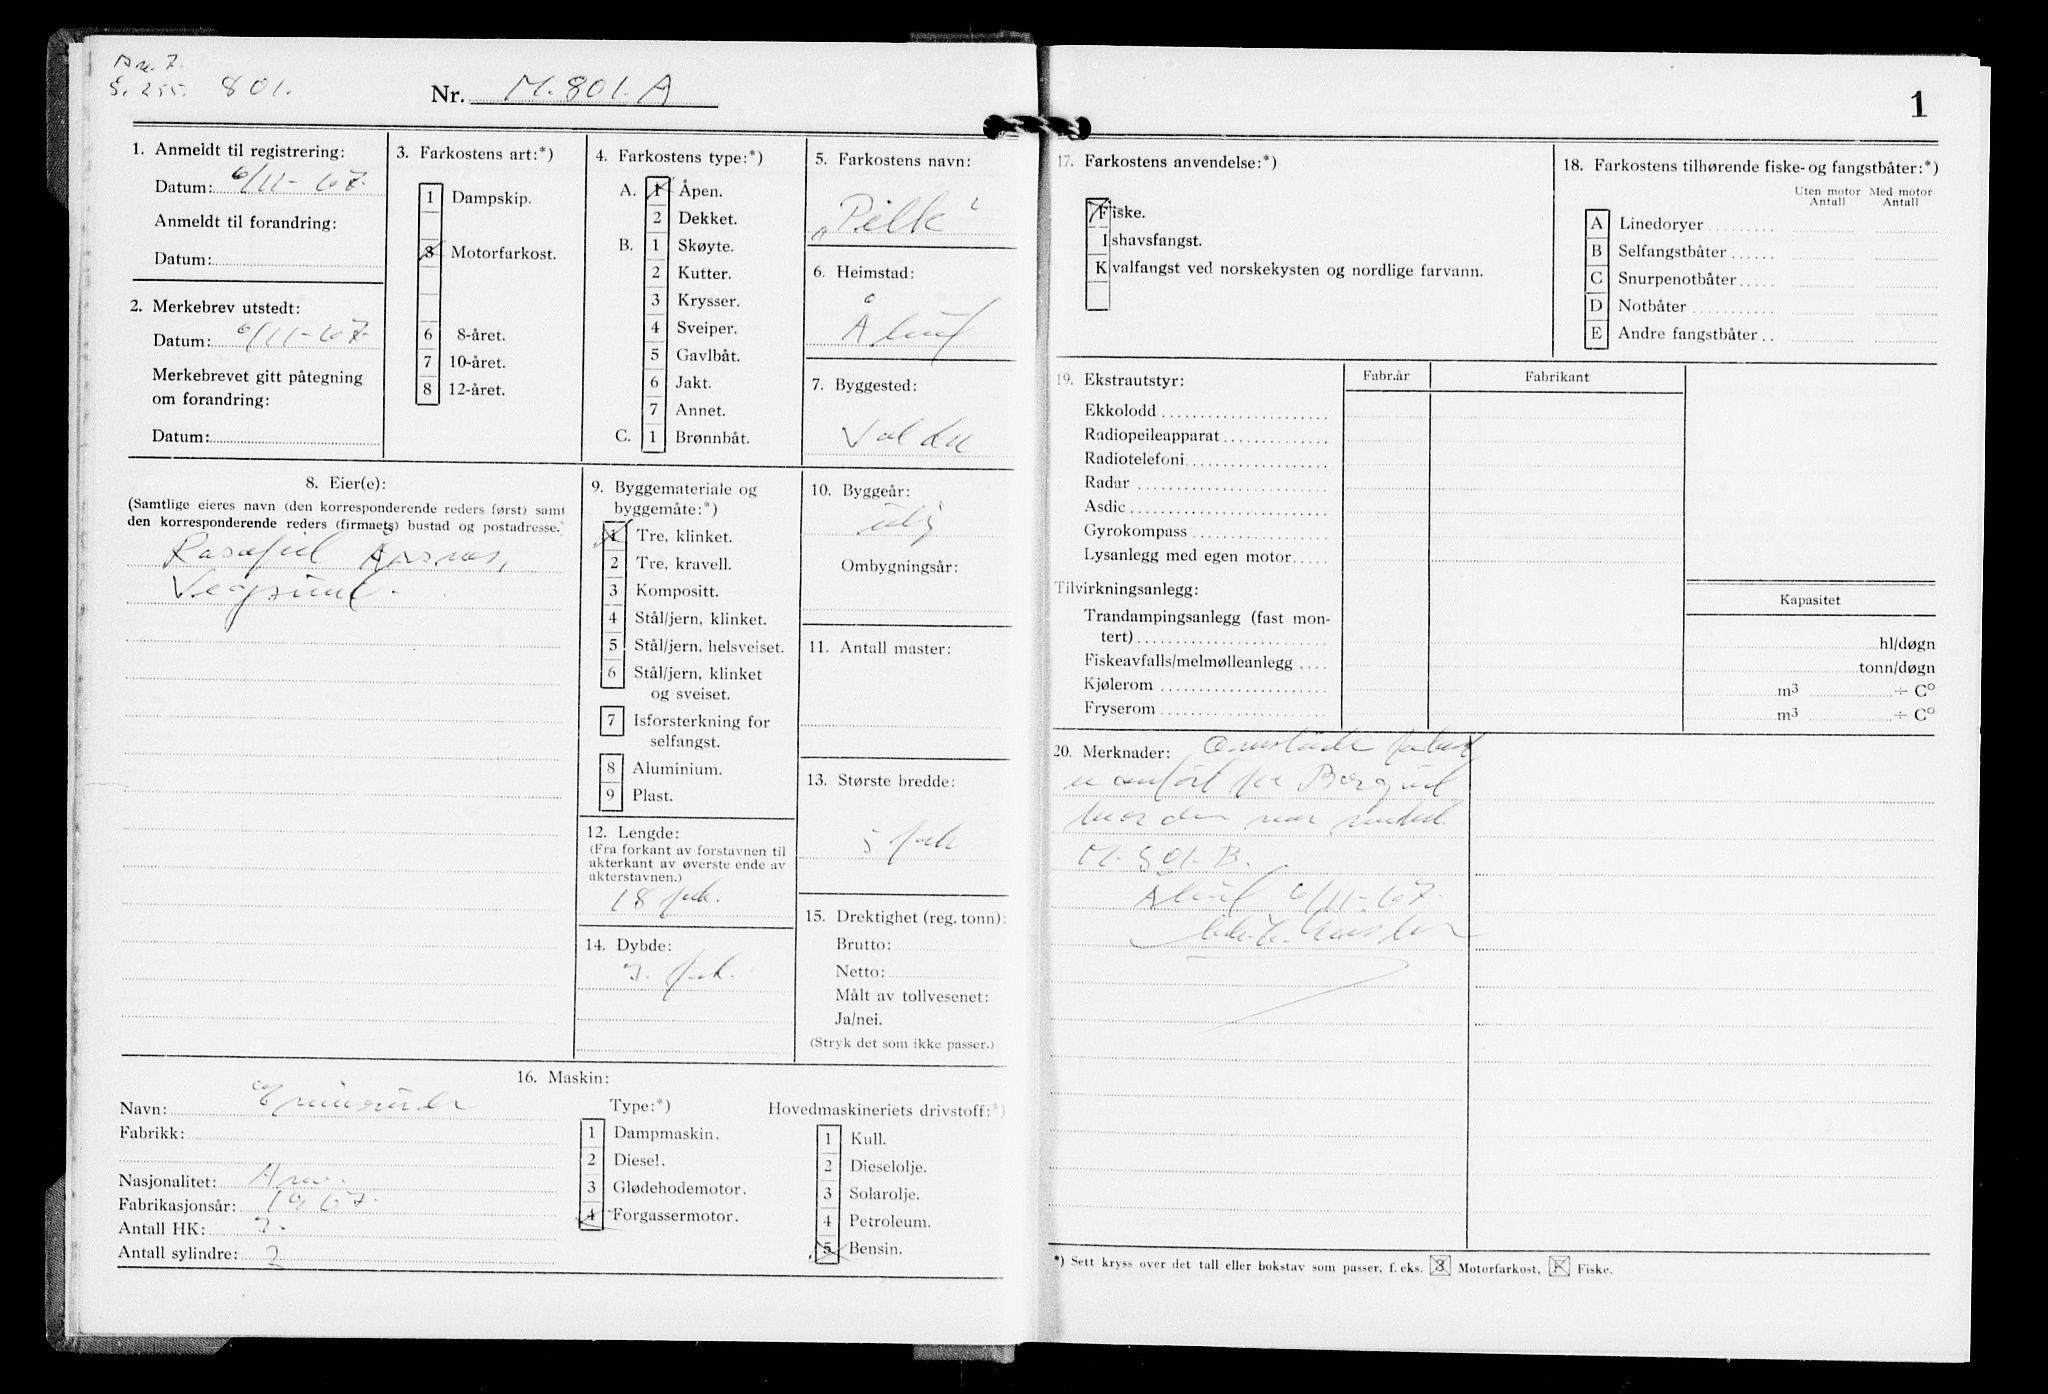 S. 255. 801.
Nr. M. 801. A
1
1. Anmeldt til registrering:
Datum: 6/11-67.
Anmeldt til forandring:
Datum:
2. Merkebrev utstedt:
Datum: 6/11-67.
Merkebrevet gitt påtegning
om forandring:
Datum:
3. Farkostens art:*)
1 Dampskip.
3 Motorfarkost.
6 8-året.
7 10-året.
8 12-året.
4. Farkostens type:*)
A. 1 Åpen.
2 Dekket.
B. 1 Skøyte.
2 Kutter.
3 Krysser.
4 Sveiper.
5 Gavlbåt.
6 Jakt.
7 Annet.
C. 1 Brønnbåt.
5. Farkostens navn:
„Pilk"
6. Heimstad:
Ålesund
7. Byggested:
Valder
8. Eier(e):
(Samtlige eieres navn (den korresponderende reders først) samt
den korresponderende reders (firmaets) bustad og postadresse.)
Aarsnes,
Vegsund.
9. Byggemateriale og
byggemåte:*)
1 Tre, klinket.
2 Tre, kravell.
3 Kompositt.
4 Stål/jern, klinket.
5 Stål/jern, helsveiset.
6 Stål/jern, klinket
og sveiset.
7 Isforsterkning for
selfangst.
8 Aluminium.
9 Plast.
10. Byggeår:
Ombygningsår:
11. Antall master:
12. Lengde:
(Fra forkant av forstavnen til
akterkant av øverste ende av
akterstavnen.)
18 fot.
13. Største bredde:
5 fot
14. Dybde:
fot.
15. Drektighet (reg. tonn):
Brutto:
Netto:
Målt av tollvesenet:
Ja/nei.
(Stryk det som ikke passer.)
16. Maskin:
Navn: Evinrude
Fabrikk:
Nasjonalitet: Am.
Fabrikasjonsår: 1967.
Antall HK: 7.
Antall sylindre: 2
Type:*)
1 Dampmaskin.
2 Diesel.
3 Glødehodemotor.
4 Forgassermotor.
Hovedmaskineriets drivstoff:*)
1 Kull.
2 Dieselolje.
3 Solarolje.
4 Petroleum.
5 Bensin.
17. Farkostens anvendelse:*)
Fiske.
Ishavsfangst.
Kvalfangst ved norskekysten og nordlige farvann.
18. Farkostens tilhørende fiske- og fangstbåter:*)
Uten motor Antall Med motor Antall
A Linedoryer
B Selfangstbåter
C Snurpenotbåter
D Notbåter
E Andre fangstbåter
19. Ekstrautstyr: Fabr.år Fabrikant
Ekkolodd
Radiopeileapparat
Radiotelefoni
Radar
Asdic
Gyrokompass
Lysanlegg med egen motor
Tilvirkningsanlegg:
Kapasitet
Trandampingsanlegg (fast mon-
tert) hl/døgn
Fiskeavfalls/melmølleanlegg tonn/døgn
Kjølerom m³ ÷ C°
Fryserom m³ ÷ C°
20. Merknader: Omstående farkost
er omført fra Borgund
hvor den var merket
M. 801. B.
Ålesund 6/11-67.
*) Sett kryss over det tall eller bokstav som passer, f. eks. 3 Motorfarkost, F Fiske.